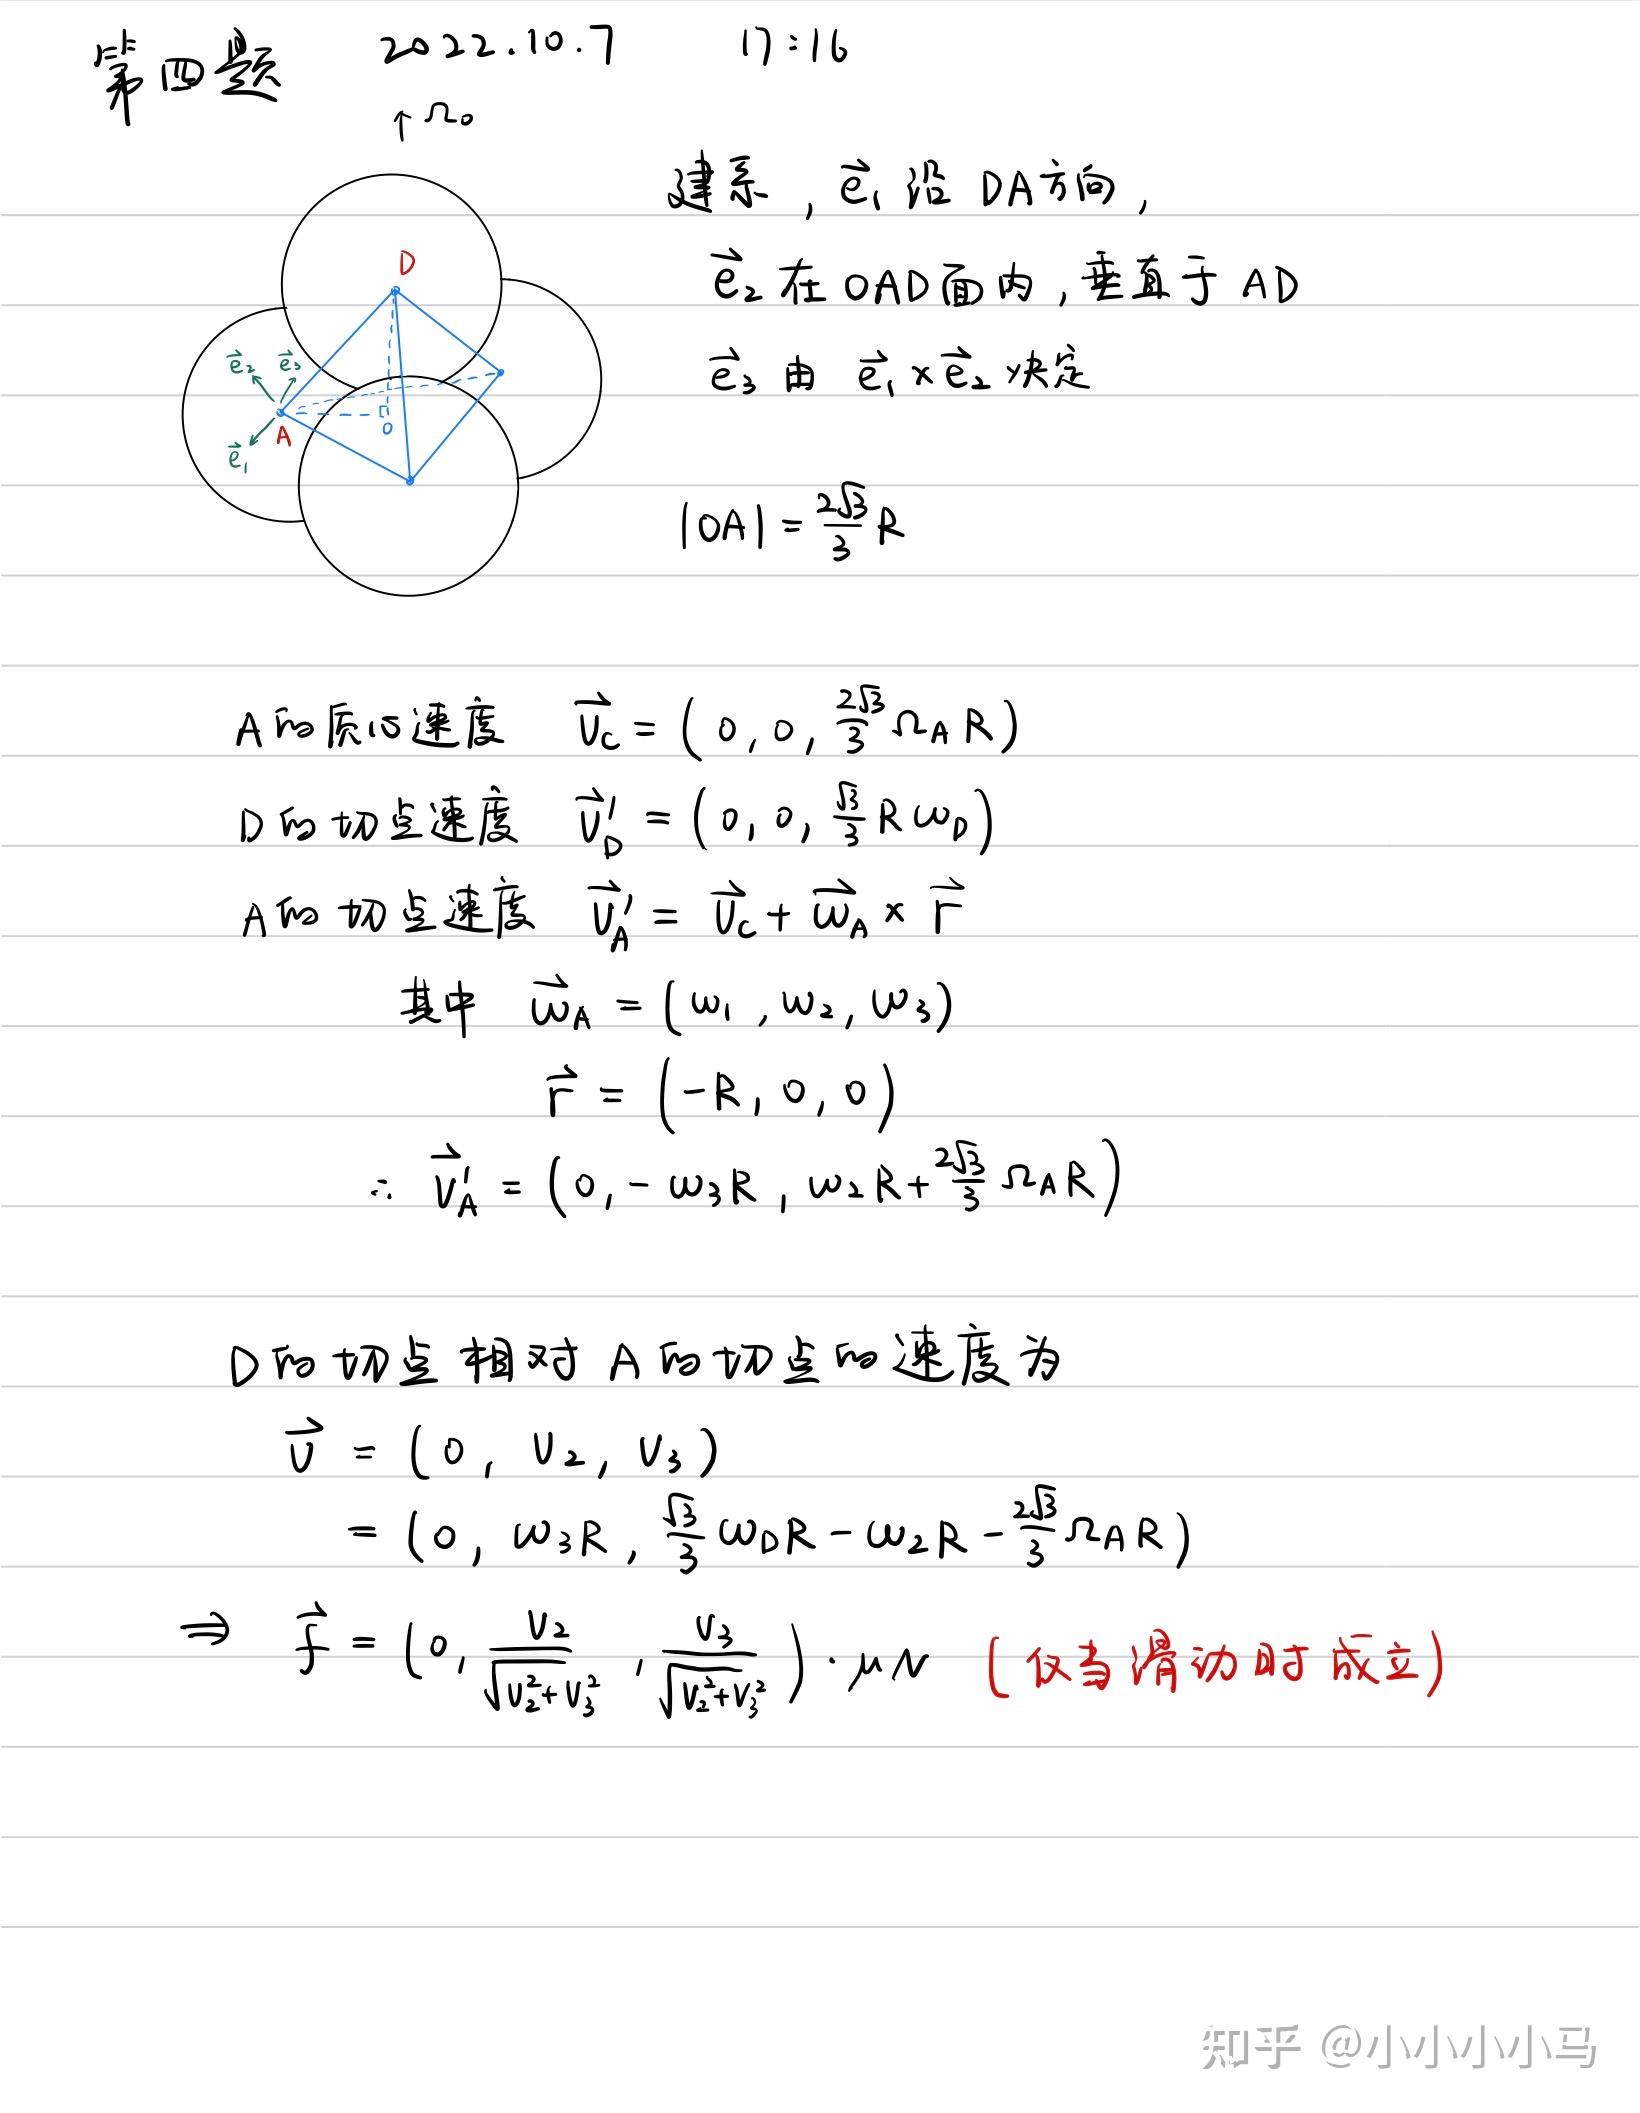 第四题 2022.10.7 17:16
↑Ω₀
建系, e⃗₁ 沿 DA方向,
e⃗₂ 在 OAD面内, 垂直于 AD
e⃗₃ 由 e⃗₁×e⃗₂ 决定
D
e⃗₂ e⃗₃
A O
e⃗₁
|OA| = 2√3/3 R
A的质心速度 V⃗c = (0, 0, 2√3/3 Ω_A R)
D的切点速度 V⃗'_D = (0, 0, √3/3 R ω_D)
A的切点速度 V⃗'_A = V⃗c + ω⃗_A × r⃗
其中 ω⃗_A = (ω₁, ω₂, ω₃)
r⃗ = (-R, 0, 0)
∴ V⃗'_A = (0, -ω₃R, ω₂R + 2√3/3 Ω_A R)
D的切点相对A的切点的速度为
V⃗ = (0, V₂, V₃)
= (0, ω₃R, √3/3 ω_D R - ω₂R - 2√3/3 Ω_A R)
⇒ f⃗ = (0, V₂/√(V₂²+V₃²), V₃/√(V₂²+V₃²))·μN (仅当滑动时成立)
知乎 @小小小小马